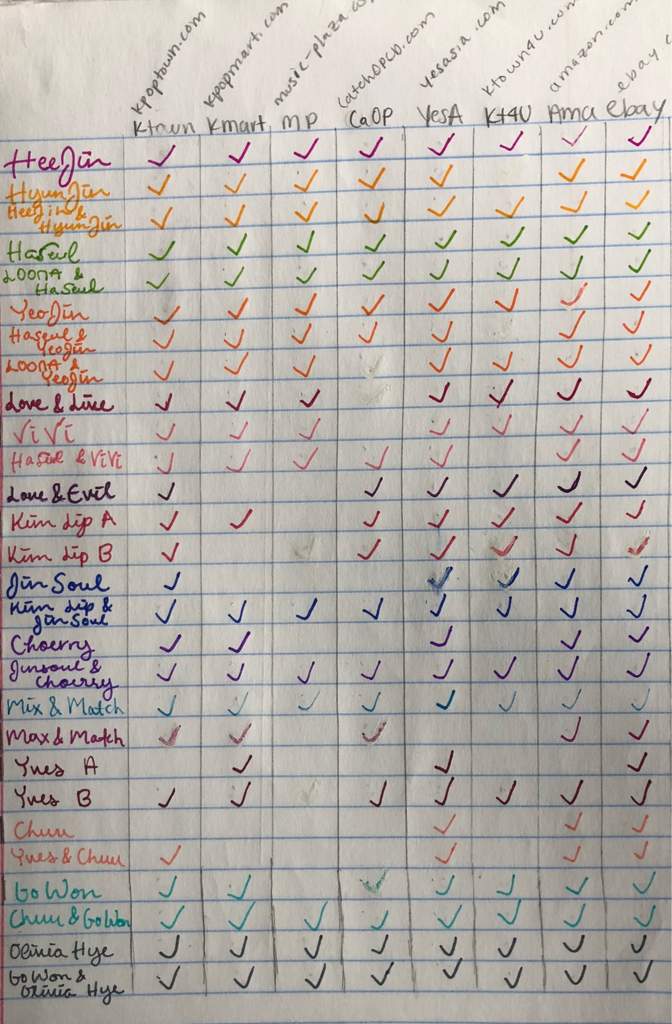 kpoptown.com kpopmart.com music-plaza.co catchopcd.com yesasia.com ktown4u.com amazon.com ebay.c
Ktown Kmart MP CaOP YesA Kt4U Ama ebay
HeeJin ✓ ✓ ✓ ✓ ✓ ✓ ✓ ✓
HyunJin ✓ ✓ ✓ ✓ ✓ ✓ ✓
HeeJin &
HyunJin ✓ ✓ ✓ ✓ ✓ ✓ ✓ ✓
HaSeul ✓ ✓ ✓ ✓ ✓ ✓ ✓ ✓
LOONA &
HaSeul ✓ ✓ ✓ ✓ ✓ ✓ ✓ ✓
YeoJin ✓ ✓ ✓ ✓ ✓ ✓ ✓ ✓
HaSeul &
YeoJin ✓ ✓ ✓ ✓ ✓ ✓ ✓
LOONA &
YeoJin ✓ ✓ ✓ ✓ ✓ ✓ ✓
Love & Live ✓ ✓ ✓ ✓ ✓ ✓ ✓
ViVi ✓ ✓ ✓ ✓ ✓ ✓ ✓
HaSeul & ViVi ✓ ✓ ✓ ✓ ✓ ✓ ✓
Love & Evil ✓ ✓ ✓ ✓ ✓ ✓
Kim Lip A ✓ ✓ ✓ ✓ ✓ ✓ ✓
Kim Lip B ✓ ✓ ✓ ✓ ✓ ✓
Jin Soul ✓ ✓ ✓ ✓ ✓
Kim Lip &
Jin Soul ✓ ✓ ✓ ✓ ✓ ✓ ✓ ✓
Choerry ✓ ✓ ✓ ✓ ✓
Jinsoul &
Choerry ✓ ✓ ✓ ✓ ✓ ✓ ✓ ✓
Mix & Match ✓ ✓ ✓ ✓ ✓ ✓ ✓ ✓
Max & Match ✓ ✓ ✓ ✓ ✓
Yves A ✓ ✓ ✓
Yves B ✓ ✓ ✓ ✓ ✓ ✓ ✓
Chuu ✓ ✓ ✓
Yves & Chuu ✓ ✓ ✓ ✓
Go Won ✓ ✓ ✓ ✓ ✓ ✓ ✓
Chuu & Go Won ✓ ✓ ✓ ✓ ✓ ✓ ✓ ✓
Olivia Hye ✓ ✓ ✓ ✓ ✓ ✓ ✓ ✓
Go Won &
Olivia Hye ✓ ✓ ✓ ✓ ✓ ✓ ✓ ✓